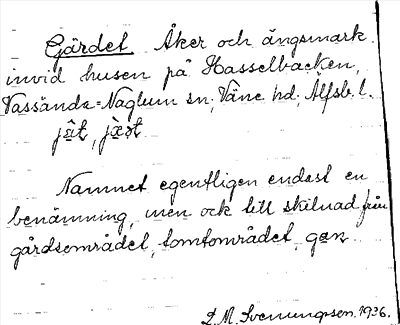 Gärdet Åker och ängsmark
invid husen på Hasselbacken,
Vassända-Naglum sn, Väne hd, Älfsb. l.
Namnet egentligen endast en
benämning, men ock till skilnad från
gårdsområdet, tomtområdet,
L. M. Svenungsson. 1936.